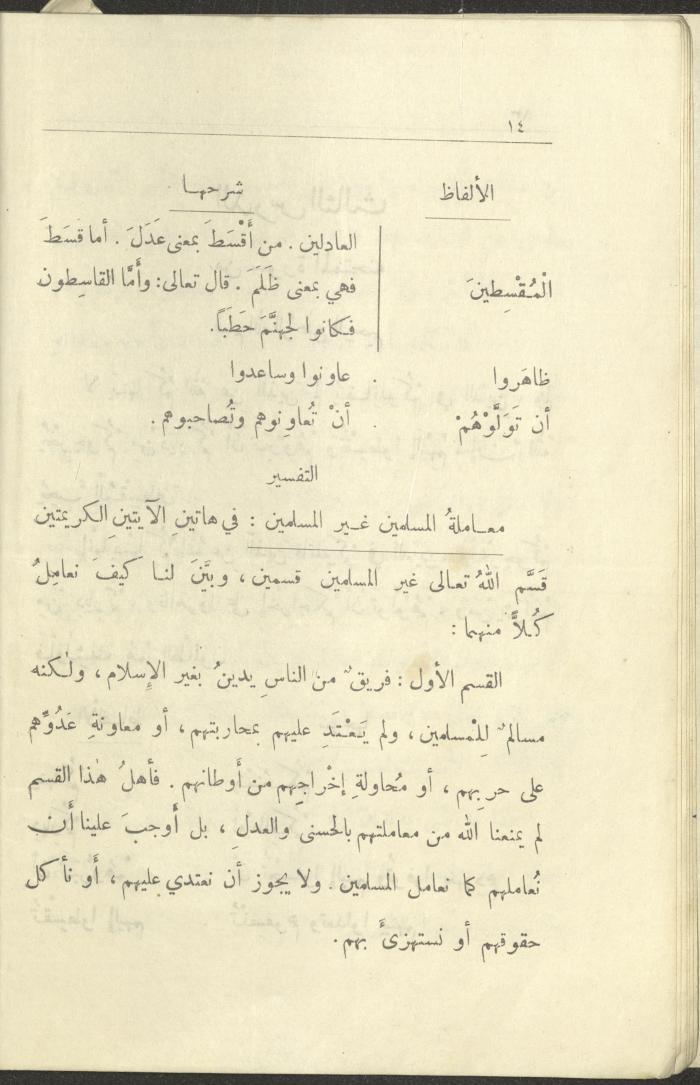 ١٤
الألفاظ شرحها
العادلين . من أَقْسَطَ بمعنى عَدَلَ . أما قسَطَ
الْمُقْسِطِينَ فهي بمعنى ظَلَمَ . قال تعالى: وأَمَّا القاسِطون
فكانوا لجهنَّمَ حَطَباً.
ظاهَروا . عاونوا وساعدوا
أن تَوَلَّوْهُمْ . أنْ تُعاوِنوهم وتُصاحبوهم .
التفسير
معاملةُ المسلمين غير المسلمين : في هاتينِ الآيتينِ الكريمتين
قَسَّم اللهُ تعالى غير المسلمين قسمين ، وبَيَّنَ لنا كيفَ نعامِلُ
كُلاًّ منهما :
القسم الأول : فريقٌ من الناسِ يدينُ بغير الإسلام ، ولكنه
مسالمٌ لِلْمسلمين ، ولم يَعْتَدِ عليهم بمحاربتهم ، أو معاونةِ عَدُوِّهم
على حربِهم ، أو مُحاولةِ إخْراجِهم من أوطانهم . فأهلُ هٰذا القسم
لم يمنعنا الله من معاملتهم بالحسنى والعدلِ ، بل أَوجبَ علينا أَن
نُعاملهم كما نعامل المسلمين . ولا يجوز أن نعتدي عليهم ، أَو نأكل
حقوقهم أو نستهزئَ بهم .